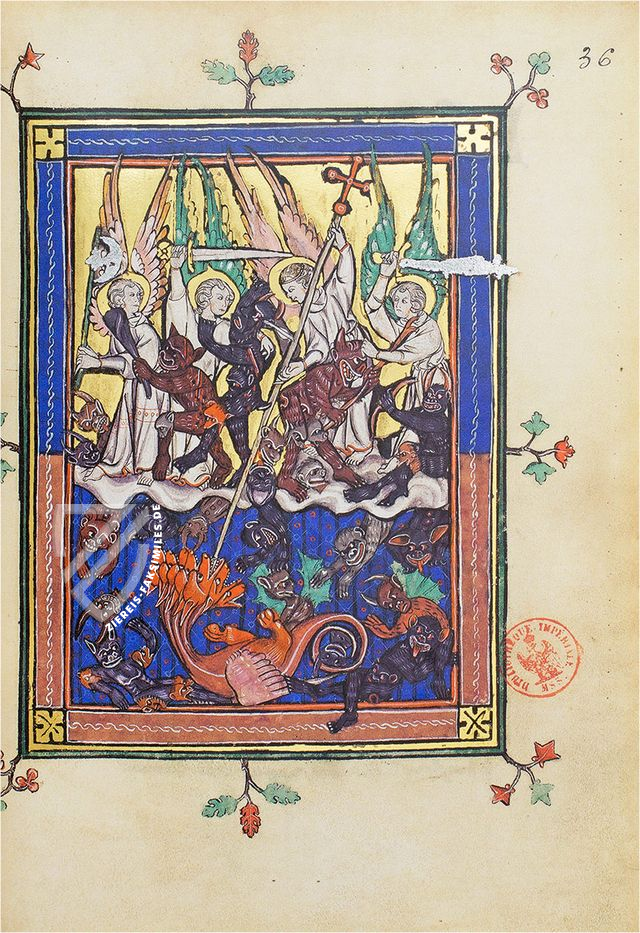 36
ZIEREIS-FAKSIMILES.DE
BIBLIOTHEQUE IMPERIALE
MSS